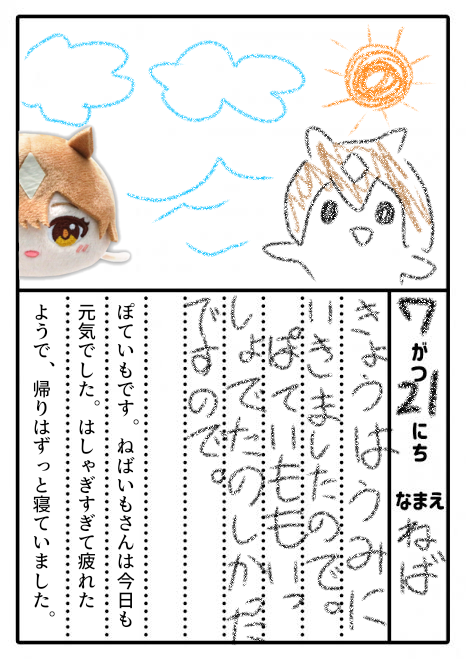 7がつ21にち なまえ ねば
きょうはうみに
いきましたのです。
ぽていももいっ
しょでたのしかった
ですので。
ぽていもです。ねばいもさんは今日も
元気でした。はしゃぎすぎて疲れた
ようで、帰りはずっと寝ていました。